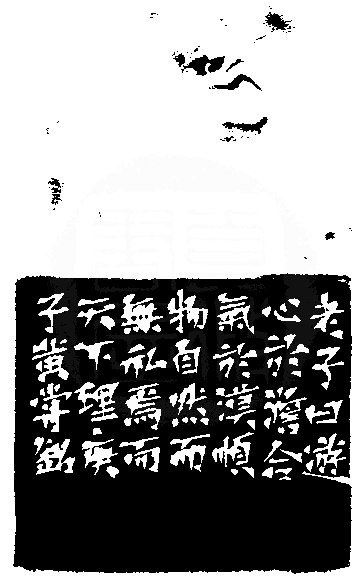 老子曰游
心於澹合
氣於漠順
物自然而
無私焉而
天下理矣
子蜚銘